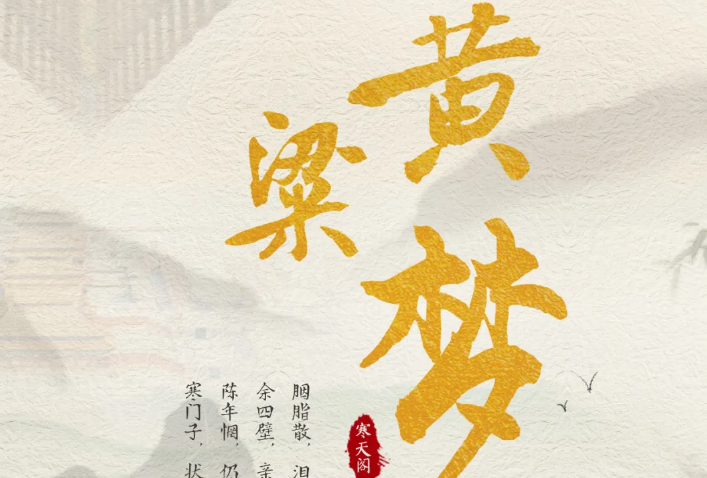 黄
粱
梦
寒天阁
胭脂散，泪
余四壁，亲
陈年惆，仍
寒门子，状